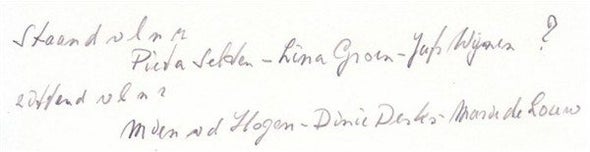 Staand v l n r
Pieta Selten - Lina Groen - Jufr Wijnen ?
zittend v l n r
Mien vd Hogen - Dinie Derks - Marie de Louw